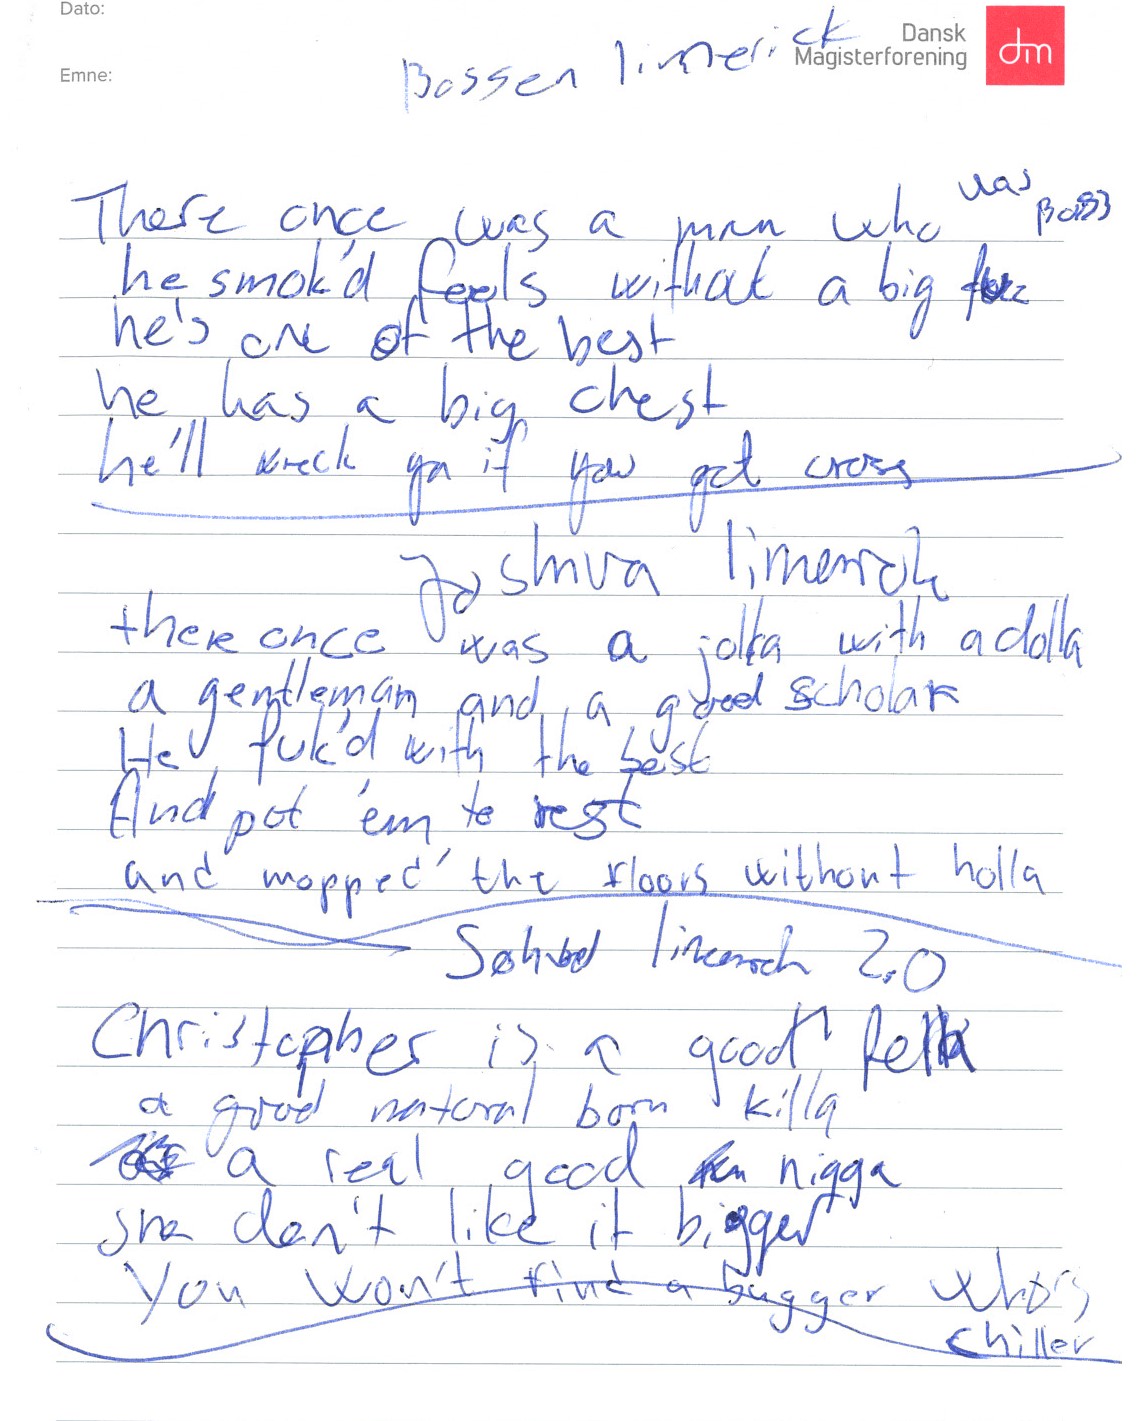 Dato:
Dansk
Magisterforening
dm
Emne:
Bossen limerick
There once was a man who was Boss
he smok'd feels without a big
he's one of the best
he has a big chest
he'll wreck ya if you get cross
Joshua limerick
there once was a jolla with a dolla
a gentleman and a good scholar
He fuk'd with the best
And pot 'em to rest
and mopped the floors without holla
limerick 2.0
Christopher is a good fella
a good natural born killa
a real good nigga
she don't like it bigger
You won't find a bugger who's
chiller